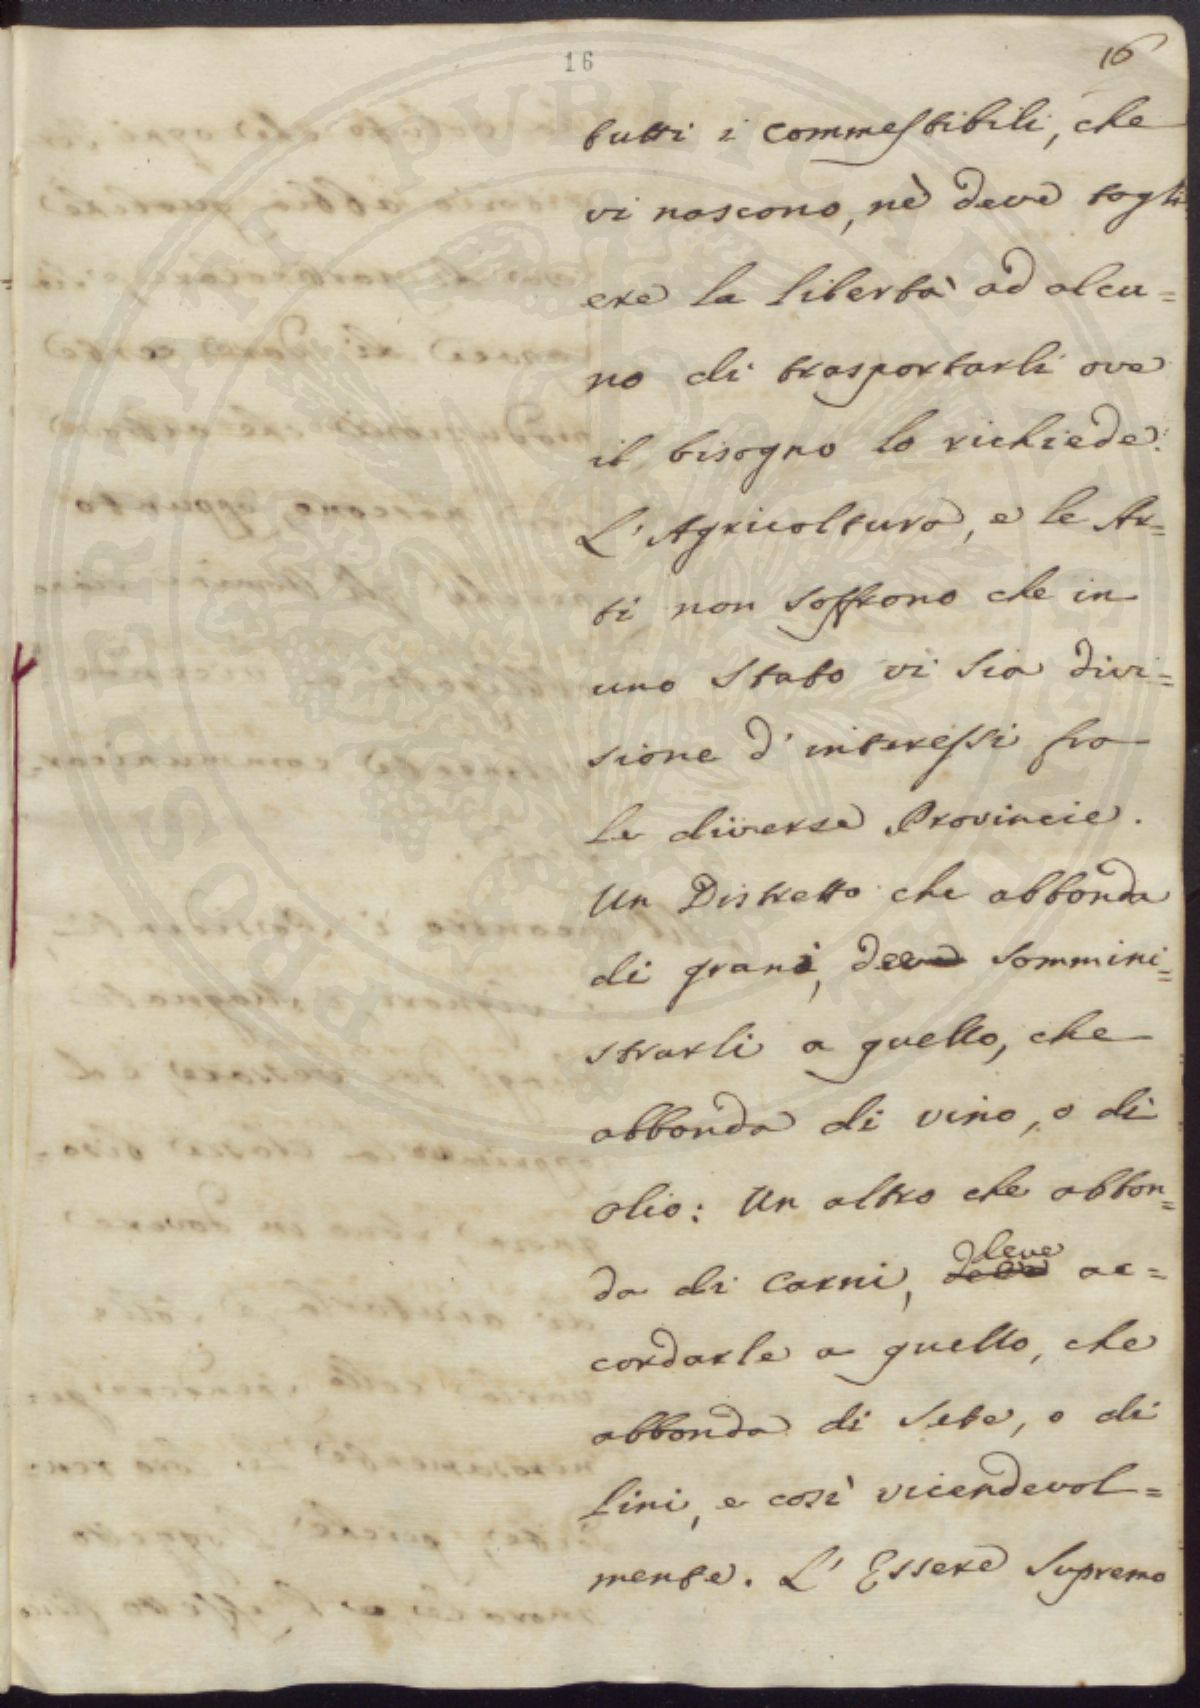 16
16
tutti i commestibili, che
vi nascono, nè deve togli
ere la libertà ad alcu=
no di trasportarli ove
il bisogno lo richiede.
L'Agricoltura, e le Ar=
ti non soffrono che in
uno Stato vi sia divi=
sione d'interessi fra
le diverse Provincie.
Un Distretto che abbonda
di grani, deve sommini=
strarli a quello, che
abbonda di vino, o di
olio: Un altro che abbon=
da di Carni, deve ac=
cordarle a quello, che
abbonda di Sete, o di
lini, e così vicendevol=
mente. L'Essere Supremo
POSTERITATI PVBLICAE VTILITATI